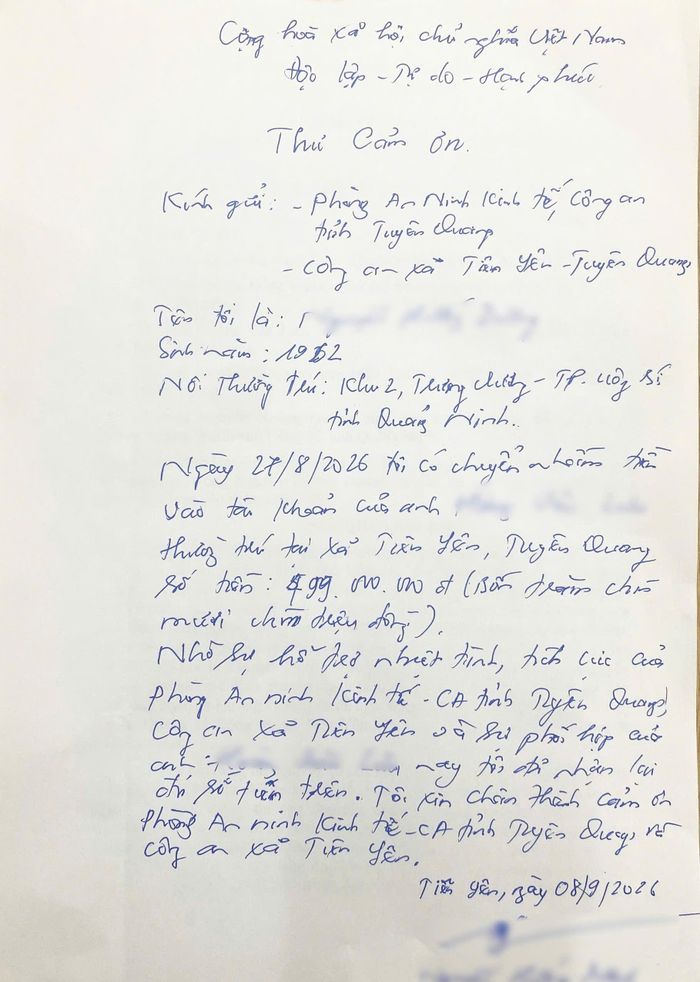 Cộng hoà xã hội chủ nghĩa Việt Nam
Độc lập - Tự do - Hạnh phúc
Thư Cảm ơn.
Kính gửi: - Phòng An Ninh Kinh tế, Công an
tỉnh Tuyên Quang
- Công an xã Tiên Yên - Tuyên Quang
Tên tôi là:
Sinh năm: 1962
Nơi Thường trú: Khu 2, - TP. Uông Bí
tỉnh Quảng Ninh.
Ngày 27/8/2026 tôi có chuyển nhầm tiền
vào tài khoản của anh
thường trú tại xã Tiên Yên, Tuyên Quang
số tiền: 499.000.000 đ (Bốn trăm chín
mươi chín triệu đồng).
Nhờ sự hỗ trợ nhiệt tình, tích cực của
Phòng An ninh Kinh tế - CA tỉnh Tuyên Quang,
Công an xã Tiên Yên và sự phối hợp của
anh nay tôi đã nhận lại
đủ số tiền trên. Tôi xin chân thành cảm ơn
Phòng An ninh Kinh tế - CA tỉnh Tuyên Quang và
Công an xã Tiên Yên.
Tiên Yên, ngày 08/9/2026